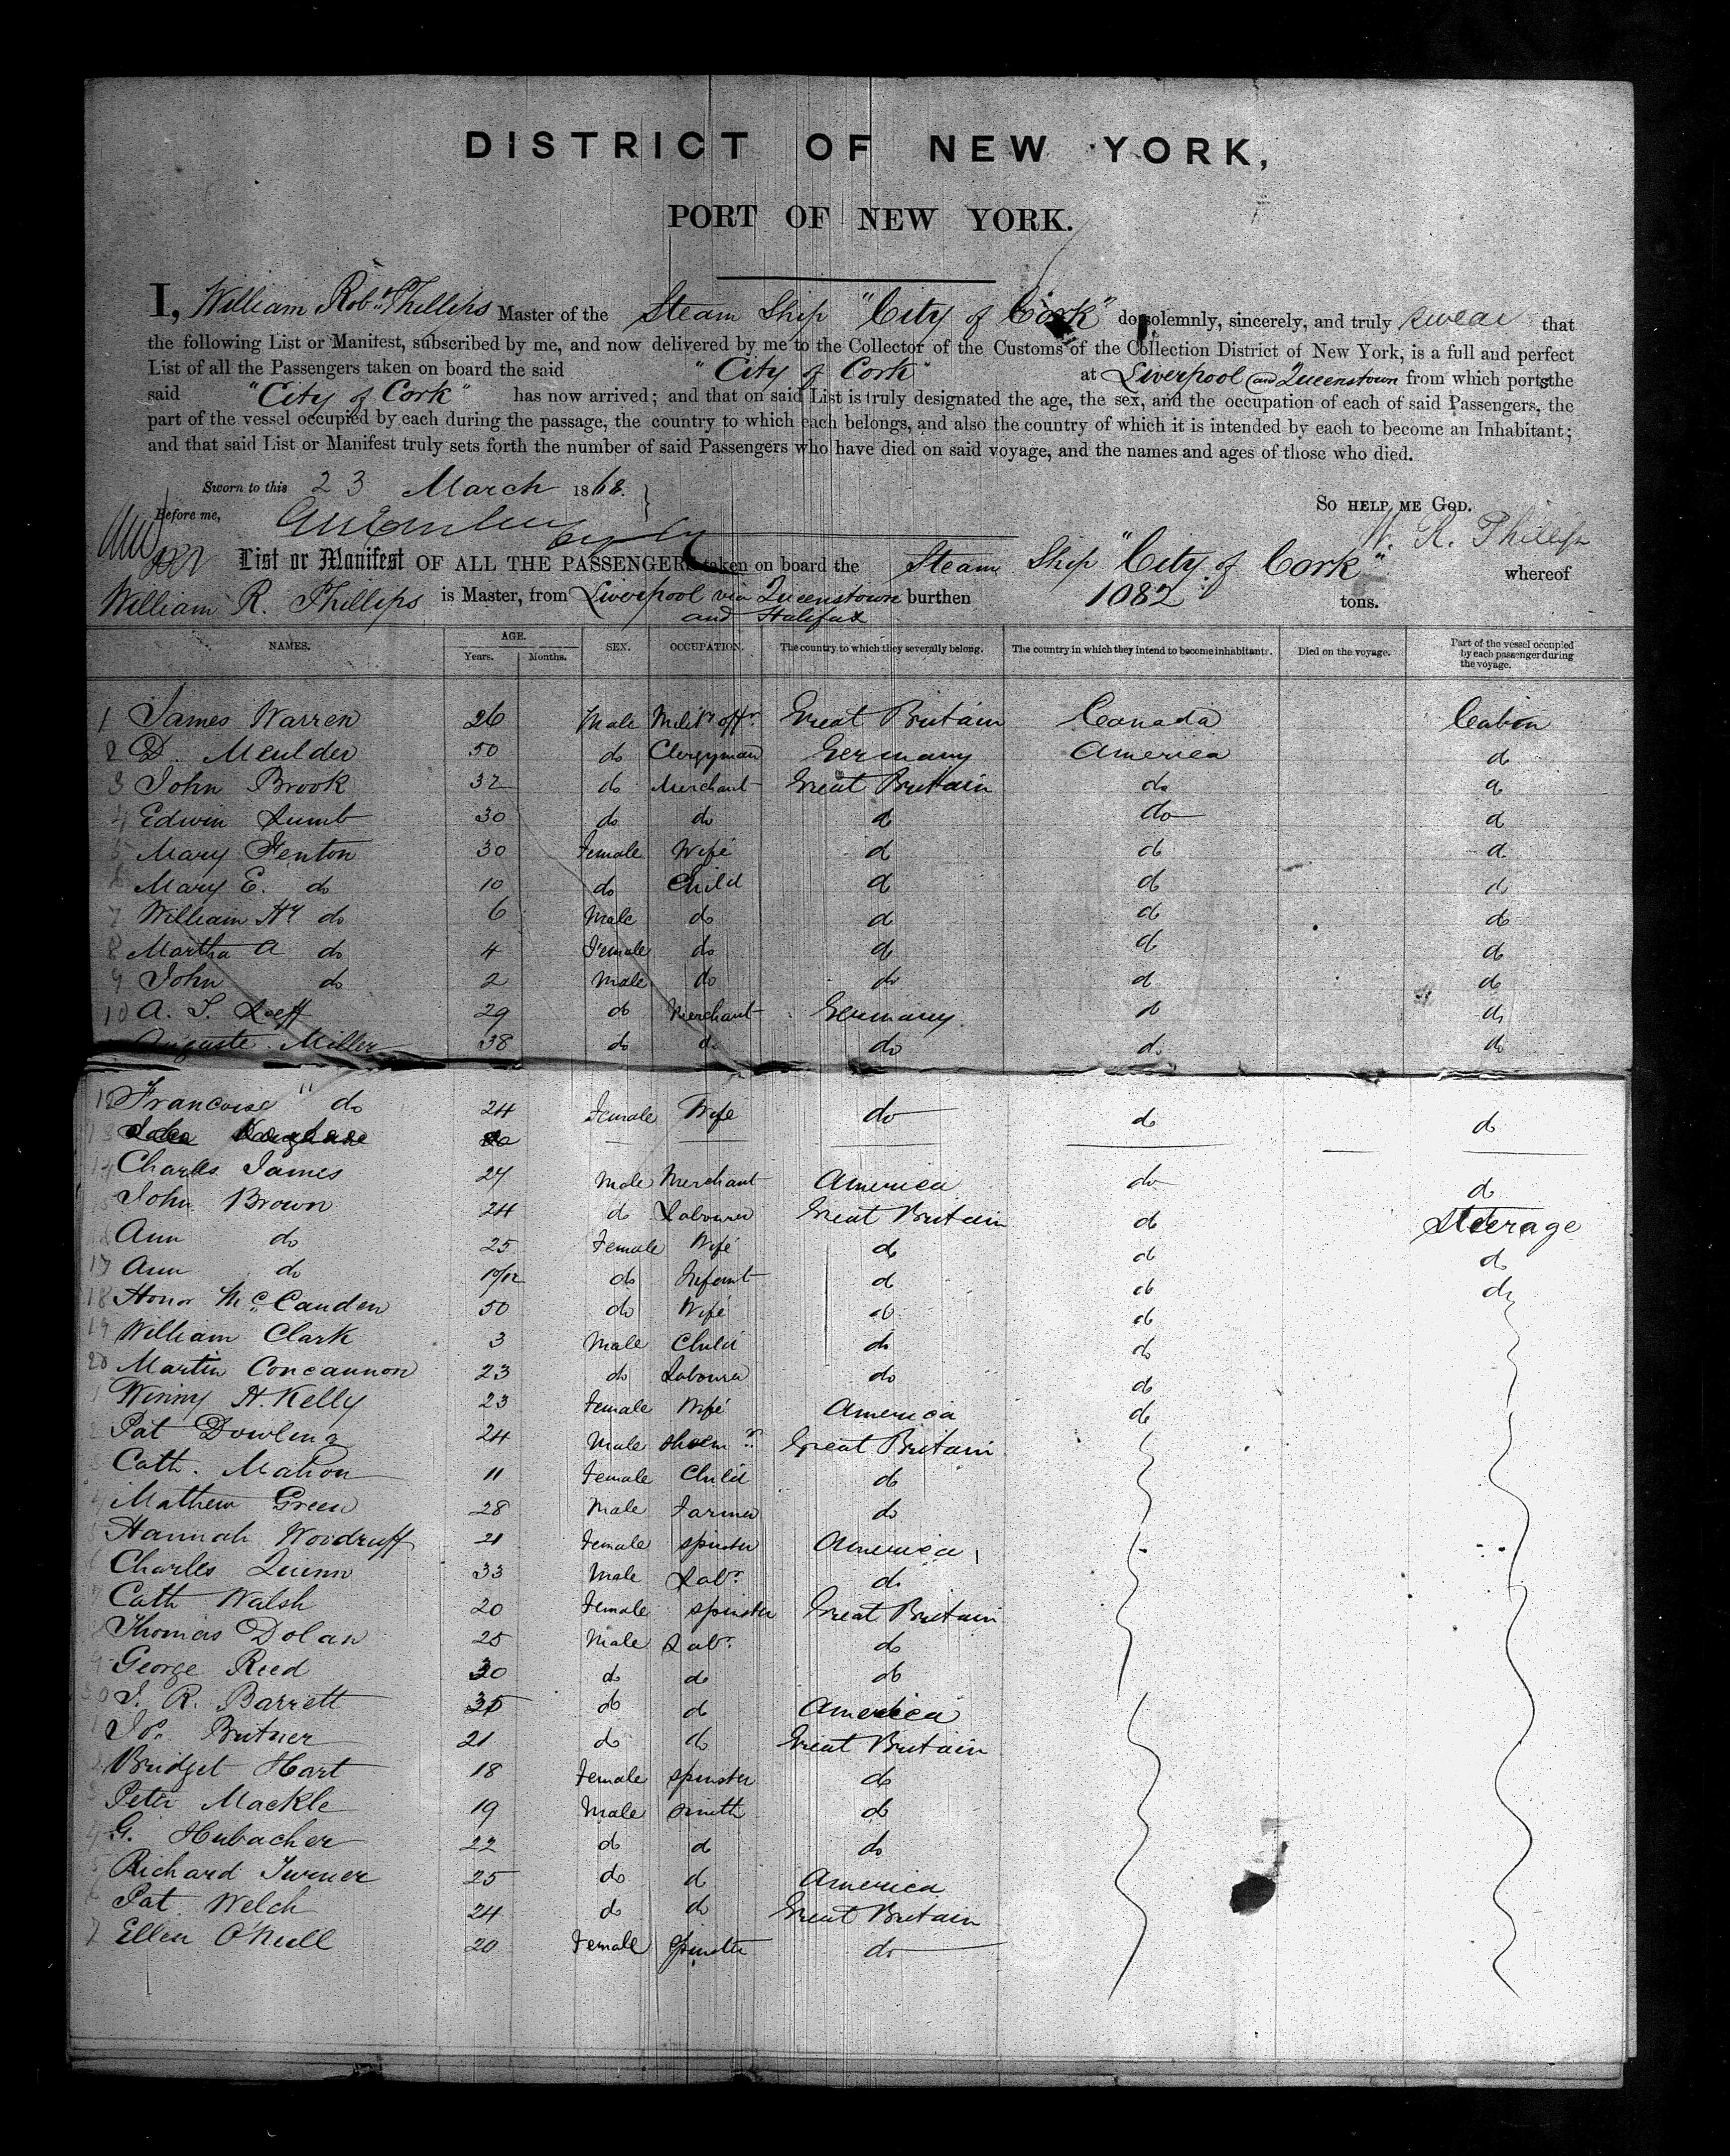 DISTRICT OF NEW YORK,
PORT OF NEW YORK.
I, William Robt. Phillips Master of the Steam Ship "City of Cork" do solemnly, sincerely, and truly swear that
the following List or Manifest, subscribed by me, and now delivered by me to the Collector of the Customs of the Collection District of New York, is a full and perfect
List of all the Passengers taken on board the said "City of Cork" at Liverpool and Queenstown from which ports the
said "City of Cork" has now arrived; and that on said List is truly designated the age, the sex, and the occupation of each of said Passengers, the
part of the vessel occupied by each during the passage, the country to which each belongs, and also the country of which it is intended by each to become an Inhabitant;
and that said List or Manifest truly sets forth the number of said Passengers who have died on said voyage, and the names and ages of those who died.
Sworn to this 23 March 1868.
So help me God.
Before me,
W. R. Phillips
List or Manifest OF ALL THE PASSENGERS taken on board the Steam Ship "City of Cork" whereof
William R. Phillips is Master, from Liverpool via Queenstown burthen 1082 tons.
and Halifax
NAMES. AGE. Years. Months. SEX. OCCUPATION. The country to which they severally belong. The country in which they intend to become inhabitants. Died on the voyage. Part of the vessel occupied by each passenger during the voyage.
1 James Warren 26 Male Mility offr. Great Britain Canada Cabin
2 D. Meulder 50 do Clergyman Germany America do
3 John Brook 32 do Merchant Great Britain do do
4 Edwin Lumb 30 do do do do do
5 Mary Fenton 30 Female Wife do do do
6 Mary E. do 10 do Child do do do
7 William Hy do 6 Male do do do do
8 Martha A do 4 Female do do do do
9 John do 2 Male do do do do
10 A. S. Loeff 29 do Merchant Germany do do
Auguste Miller 38 do do do do do
12 Francoise " do 24 Female Wife do do do
13
14 Charles James 27 Male Merchant America do do
15 John Brown 24 do Labourer Great Britain do Steerage
16 Ann do 25 Female Wife do do do
17 Ann do 10/12 do Infant do do do
18 Honor McCauden 50 do Wife do do
19 William Clark 3 Male Child do do
20 Martin Concannon 23 do Labourer do do
1 Winny H. Kelly 23 Female Wife America do
2 Pat Dowling 24 Male shoemr. Great Britain
Cath. Mahon 11 Female Child do
4 Mathew Green 28 Male Farmer do
5 Hannah Woodruff 21 Female spinster America
6 Charles Quinn 33 Male Labr. do
7 Cath Walsh 20 Female spinster Great Britain
Thomas Dolan 25 Male Labr. do
9 George Reed 30 do do do
30 J. R. Barrett 35 do do America
1 Jos. Butner 21 do do Great Britain
2 Bridget Hart 18 Female spinster do
3 Peter Mackle 19 Male smith do
4 G. Hubacher 22 do do do
5 Richard Turner 25 do do America
6 Pat Welch 24 do do Great Britain
7 Ellen O'Neill 20 Female Spinster do